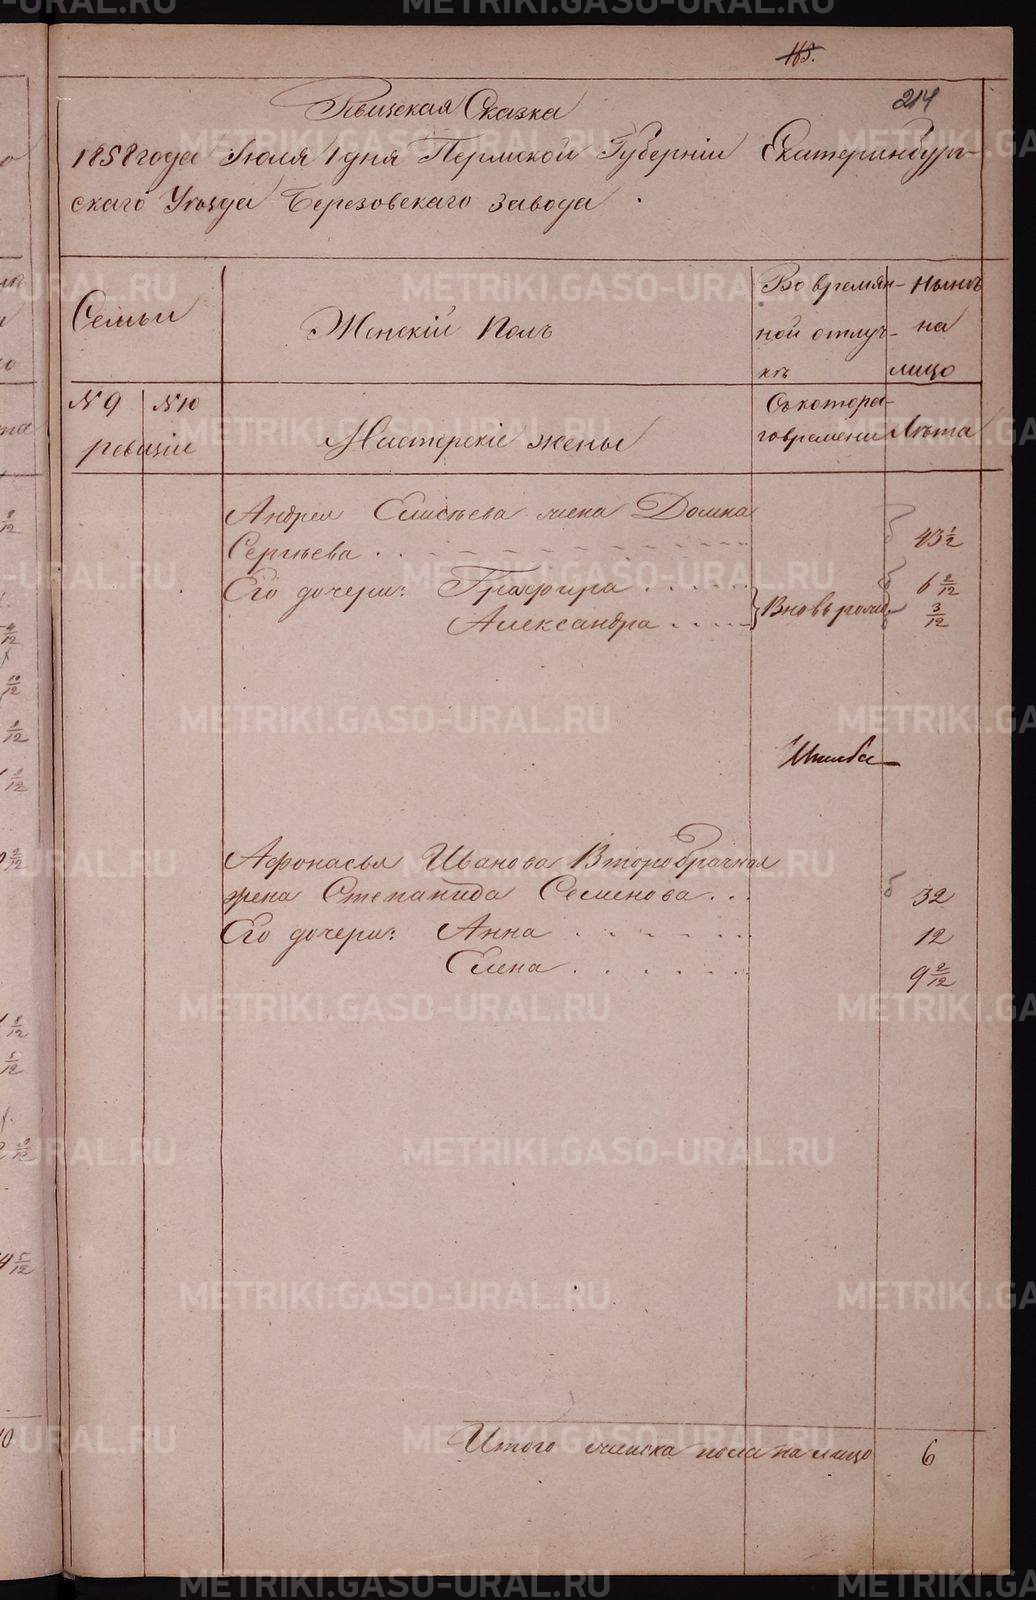 165.
214
Ревизская Сказка
1858 года Июля 1 дня Пермской Губерніи Екатеринбург-
скаго Уѣзда Березовскаго Завода
Семьи
Женскій Полъ
Во времян-
ной отлуч-
кѣ
Нынѣ
на
лицо
№ 9 № 10
ревизіи
Мастерскіе жены
Съ котора-
го времени
Лѣта
Андрея Елисѣева жена Домна
Сергѣева 43 1/2
Его дочери: Графира 6 2/12
Вновь рожд.
Александра 3/12
Афонасья Иванова Второбрачная
жена Степанида Семенова 32
Его дочери: Анна 12
Елена 9 2/12
Итого женска пола на лицо 6
METRIKI.GASO-URAL.RU